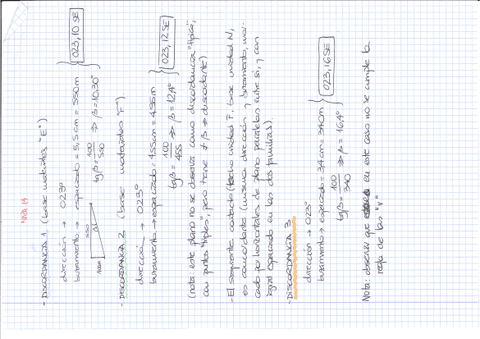 MAPA 14
- DISCORDANCIA 1 (base materiales "E")
dirección → 023º
buzamiento → espaciado = 5,5 cm = 550 m
tg β = 100/550 ⇒ β = 10,30º
023, 10 SE
100m
550
- DISCORDANCIA 2 (base materiales "F")
dirección → 023º
buzamiento → espaciado 4,55 cm = 455 m
tg β = 100/455 ⇒ β = 12,4º
023, 12 SE
(nota: este plano no se observa como discordancia "típica",
con puntos "triples", pero tiene ≠ β → discordante)
- El siguiente contacto (techo unidad F, base unidad N,
es concordante (misma dirección y buzamiento, mar-
cado por horizontales de plano paralelas entre sí, y con
igual espaciado en las dos familias)
- DISCORDANCIA 3.
dirección → 023º
buzamiento → espaciado = 3,4 cm = 340 m
tg β = 100/340 ⇒ β = 16,4º
023, 16 SE
Nota: observar que en este caso no se cumple la
regla de las "V"